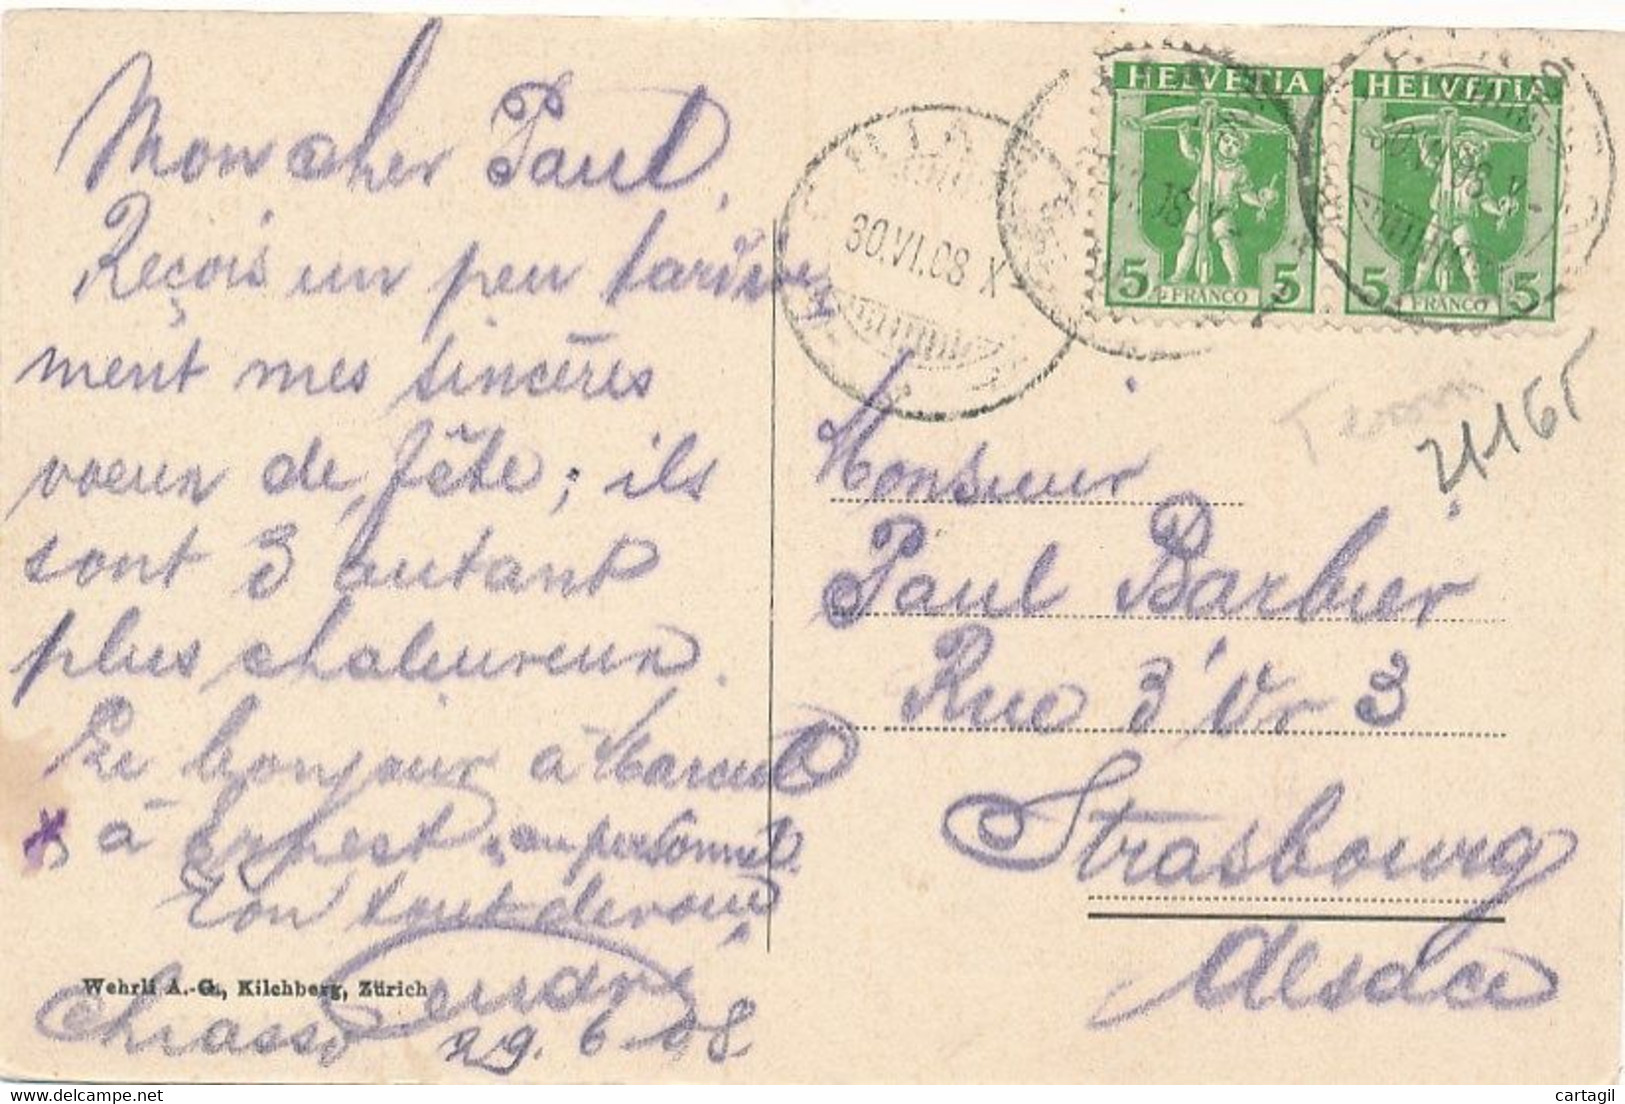 Mon cher Paul,
Reçois un peu tardive
ment mes sincères
voeux de fête; ils
sont d'autant
plus chaleureux.
Le bonjour à Marcel
à Ernest, au personnel.
Ton tout dévoué
Chiasso 29.6.08
Wehrli A.-G., Kilchberg, Zürich
HELVETIA
5 FRANCO 5
HELVETIA
5 FRANCO 5
30.VI.08 X
21165
Monsieur
Paul Barbier
Rue d'Or 3
Strasbourg
Alsace
cartagil
www.delcampe.net